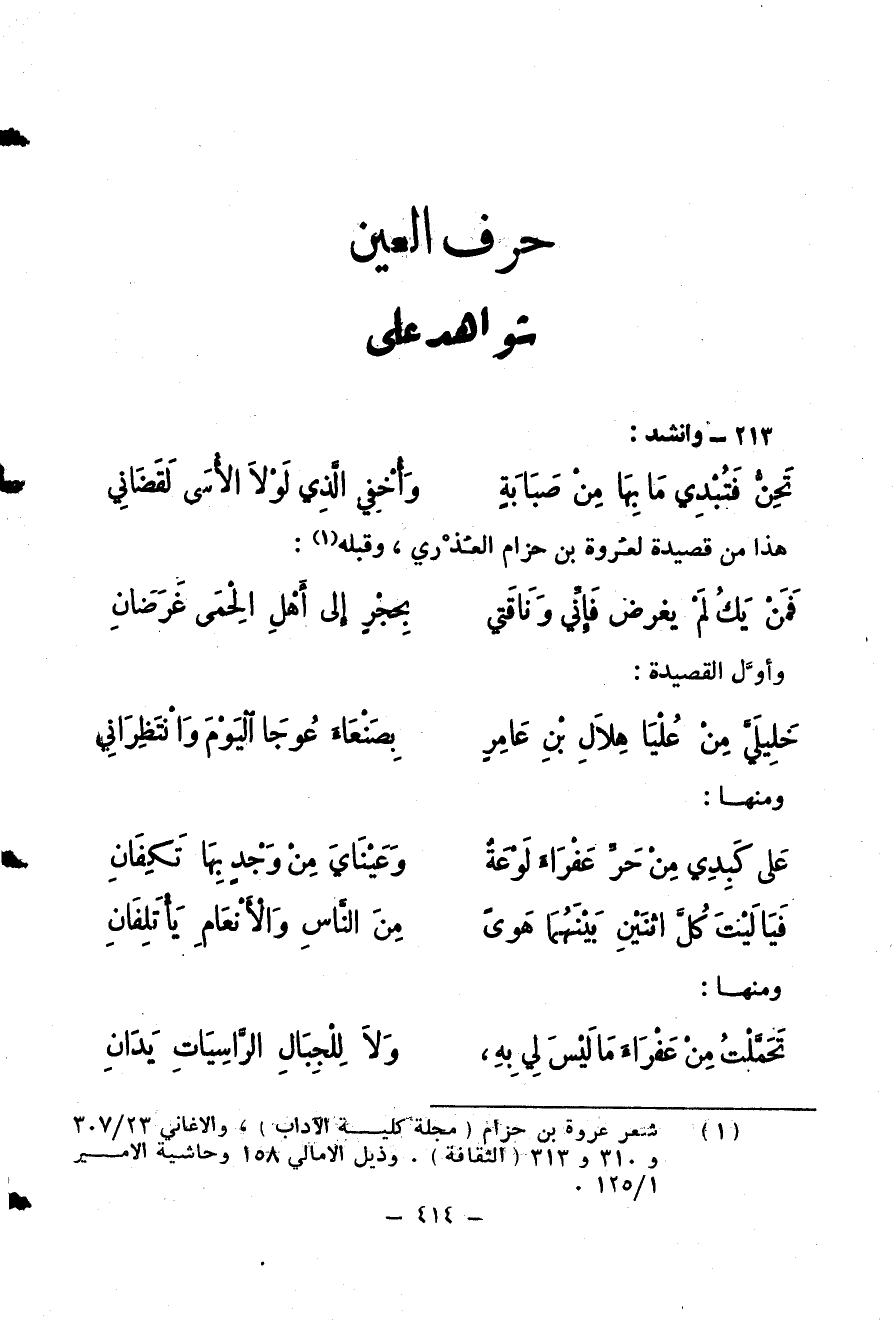 حرف العين
شواهد على
٢١٣ – وانشد :
تَحِنُّ فَتُبْدِي مَا بِهَا مِنْ صَبَابَةٍ وَأُخْفِي الَّذِي لَوْلاَ الأُسَى لَقَضَانِي
هذا من قصيدة لعُروة بن حزام العُذْري ، وقبله(١) :
فَمَنْ يَكُ لَمْ يغرض فَإِنِّي وَنَاقَتِي بِحِجْرٍ إِلى أَهْلِ الْحِمَى غَرَضَانِ
وأوَّل القصيدة :
خَلِيلَيَّ مِنْ عُلْيَا هِلاَلِ بْنِ عَامِرٍ بِصَنْعَاءَ عُوجَا الْيَوْمَ وَانْتَظِرَانِي
ومنهـا :
عَلى كَبِدِي مِنْ حَرِّ عَفْرَاءَ لَوْعَةٌ وَعَيْنَايَ مِنْ وَجْدٍ بِهَا تَكِفَانِ
فَيَا لَيْتَ كُلَّ اثْنَيْنِ بَيْنَهُمَا هَوىً مِنَ النَّاسِ وَالْأَنْعَامِ يَأْتَلِفَانِ
ومنهـا :
تَحَمَّلْتُ مِنْ عَفْرَاءَ مَا لَيْسَ لِي بِهِ، وَلاَ لِلْجِبَالِ الرَّاسِيَاتِ يَدَانِ
(١) شعر عروة بن حزام ( مجلة كليــة الآداب ) ، والاغاني ٣٠٧/٢٣
و ٣١٠ و ٣١٣ ( الثقافة ) . وذيل الامالي ١٥٨ وحاشية الامـــير
١٢٥/١ .
– ٤١٤ –